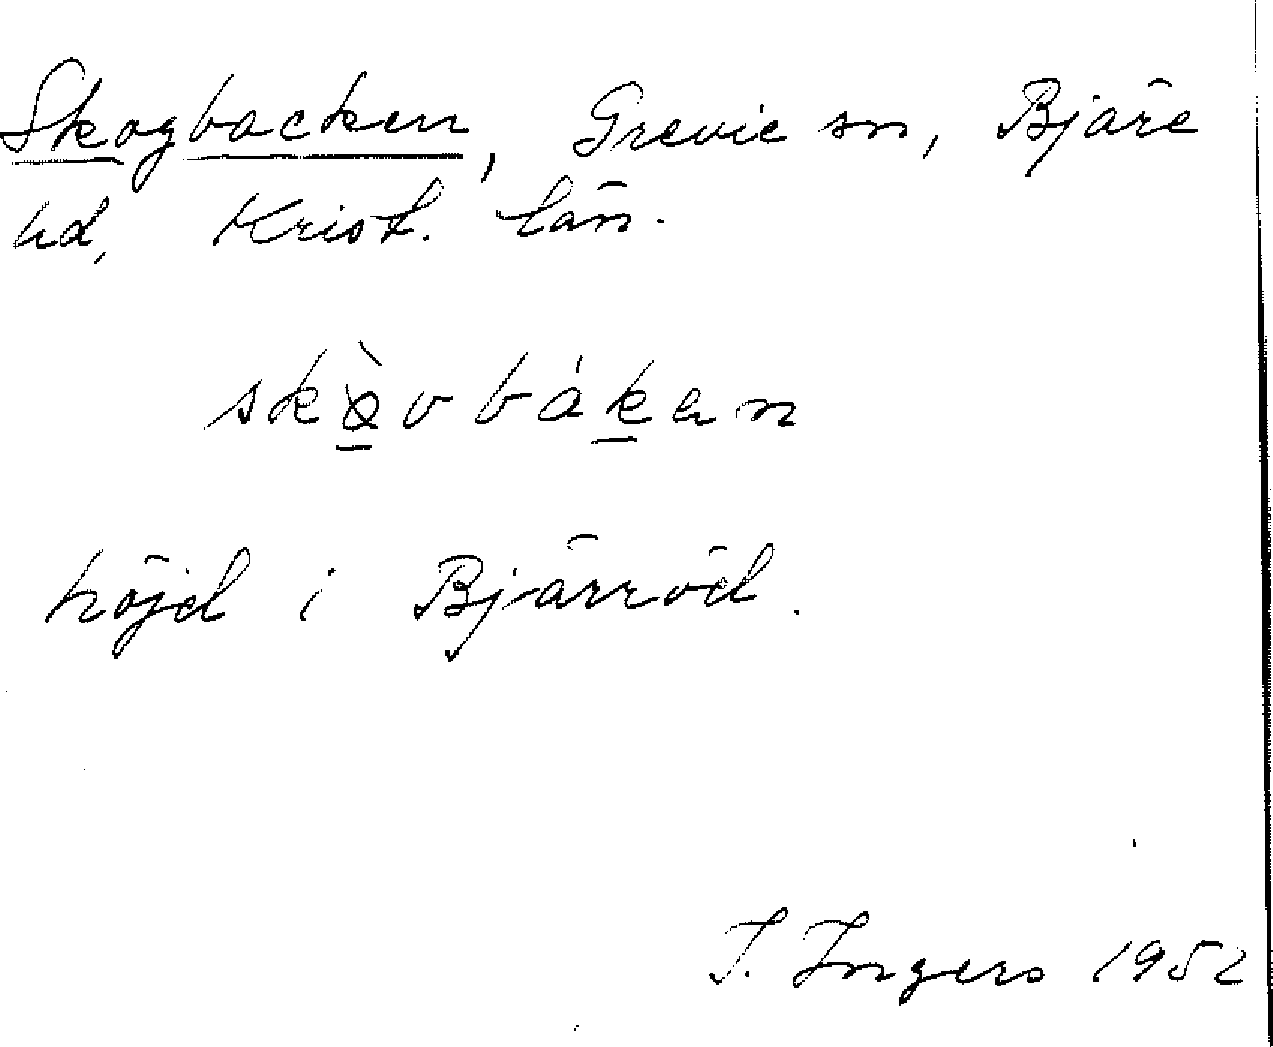 Skogbacken, Grevie sn, Bjäre
hd, Krist. län.
skò̱vbáḵan
höjd i Bjärröd.
I. Ingers 1952